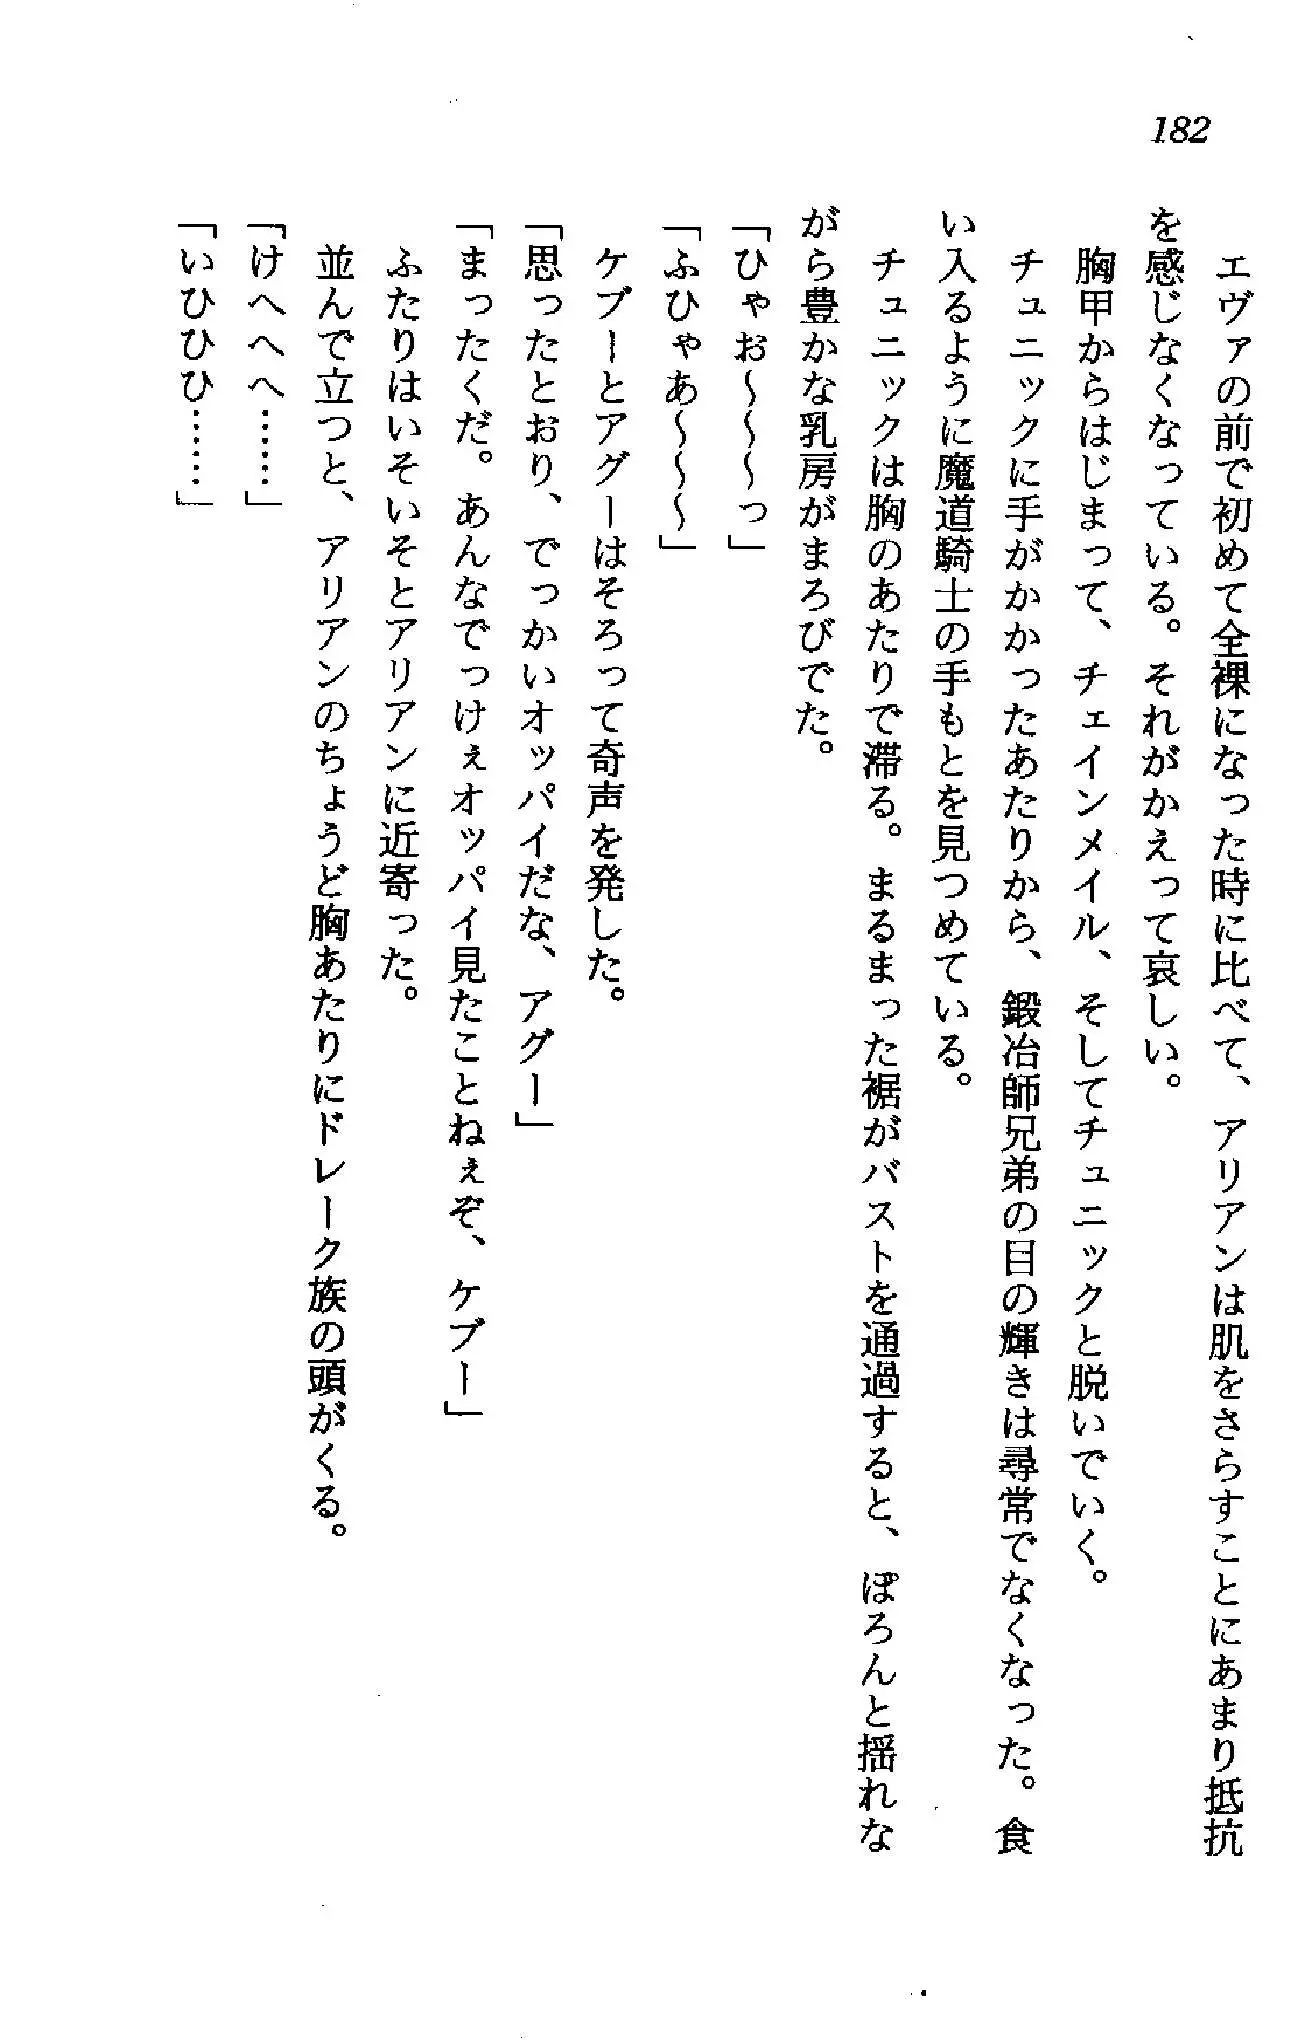 182
エヴァの前で初めて全裸になった時に比べて、アリアンは肌をさらすことにあまり抵抗
を感じなくなっている。それがかえって哀しい。
胸甲からはじまって、チェインメイル、そしてチュニックと脱いでいく。
チュニックに手がかかったあたりから、鍛冶師兄弟の目の輝きは尋常でなくなった。食
い入るように魔道騎士の手もとを見つめている。
チュニックは胸のあたりで滞る。まるまった裾がバストを通過すると、ぽろんと揺れな
がら豊かな乳房がまろびでた。
「ひゃお〜〜〜っ」
「ふひゃあ〜〜〜」
ケブーとアグーはそろって奇声を発した。
「思ったとおり、でっかいオッパイだな、アグー」
「まったくだ。あんなでっけぇオッパイ見たことねぇぞ、ケブー」
ふたりはいそいそとアリアンに近寄った。
並んで立つと、アリアンのちょうど胸あたりにドレーク族の頭がくる。
「けへへへ……」
「いひひひ……」